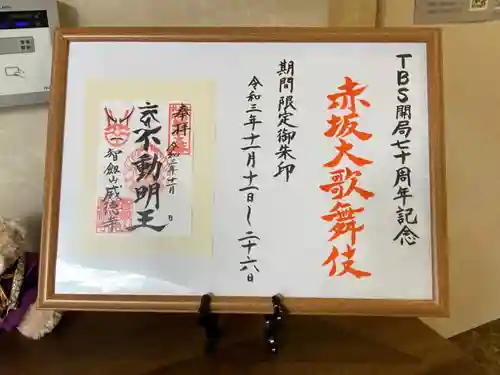 TBS開局七十周年記念
赤坂大歌舞伎
期間限定御朱印
令和三年十一月十一日〜二十六日
奉拝
令和三年十一月 日
不動明王
智剱山威徳寺